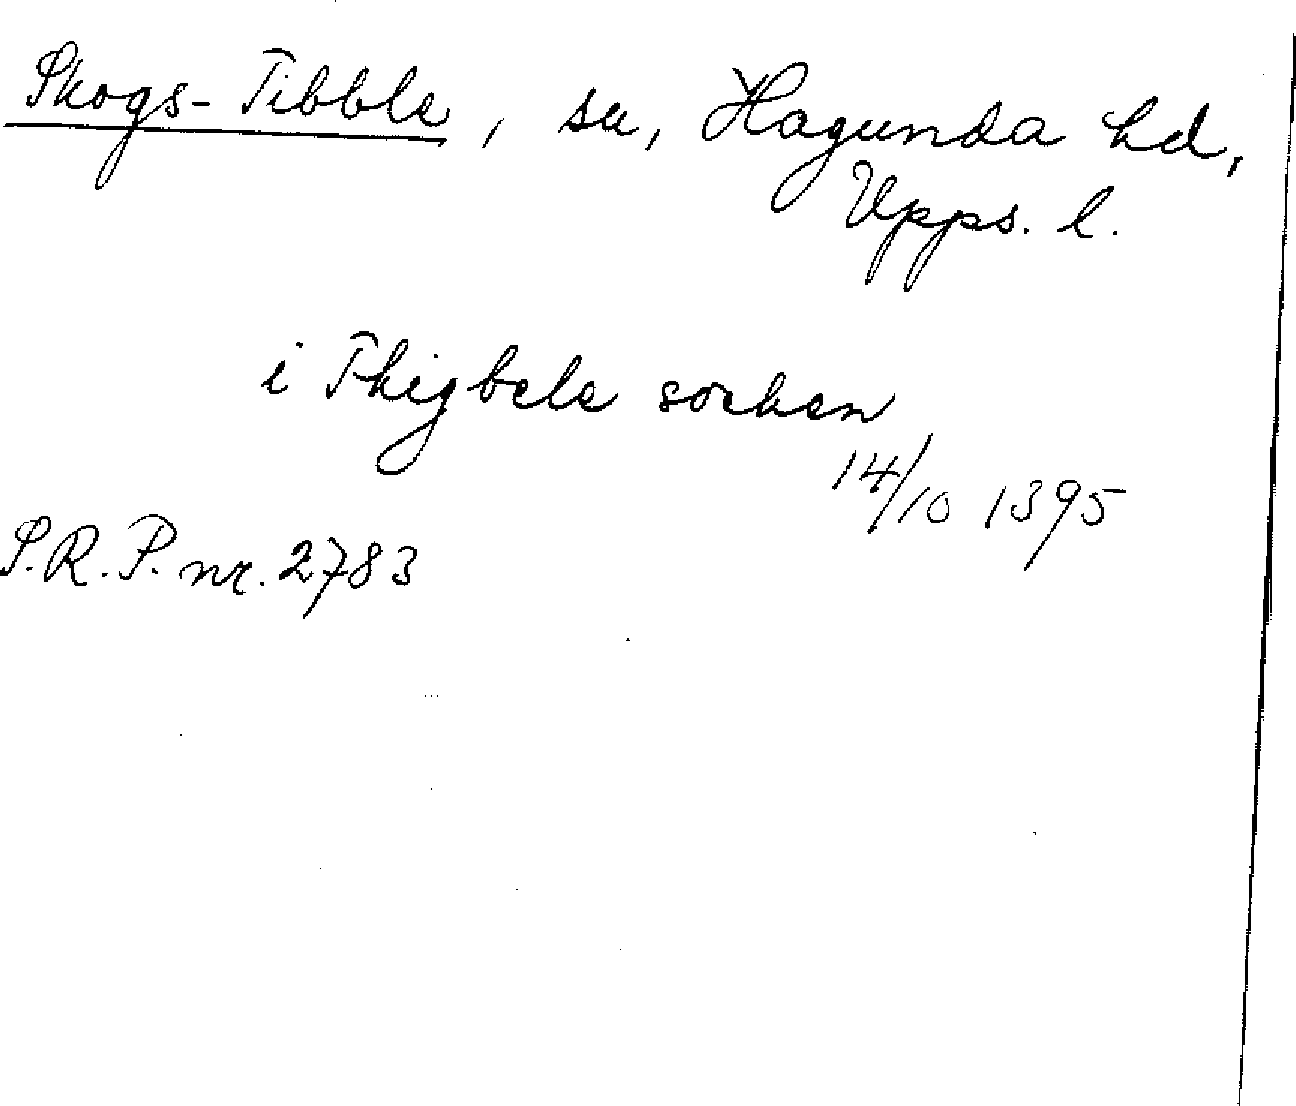 Skogs-Tibble, sn, Hagunda hd,
Upps. l.
i Thigbele sochen
14/10 1395
S.R.P. nr. 2783